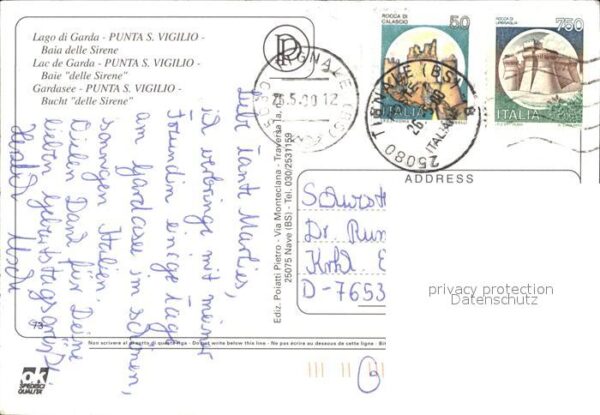 Lago di Garda - PUNTA S. VIGILIO -
Baia delle Sirene
Lac de Garda - PUNTA S. VIGILIO -
Baie "delle Sirene"
Gardasee - PUNTA S. VIGILIO -
Bucht "delle Sirene"
Liebe Tante Marlies,
ich verbringe mit meiner
Freundin einige Tage
am Gardasee im schönen,
sonnigen Italien.
Vielen Dank für Deine
lieben Geburtstagsgrüße!
Herzliche
Ediz. Poiatti Pietro - Via Monteclana - Traversa Ia, 
25075 Nave (BS) - Tel. 030/2531159
ROCCA DI
CALASCIO
50
ITALIA
ROCCA DI
URBISAGLIA
750
ITALIA
26.5.90 12
25080
(BS)
ITALIA
ADDRESS
Dr.
D-7653
privacy protection
Datenschutz
Non scrivere al disotto di questa riga - Do not write below this line - Ne pas écrire au dessous de cette ligne -
ok
SPEDISCI
QUALITÀ